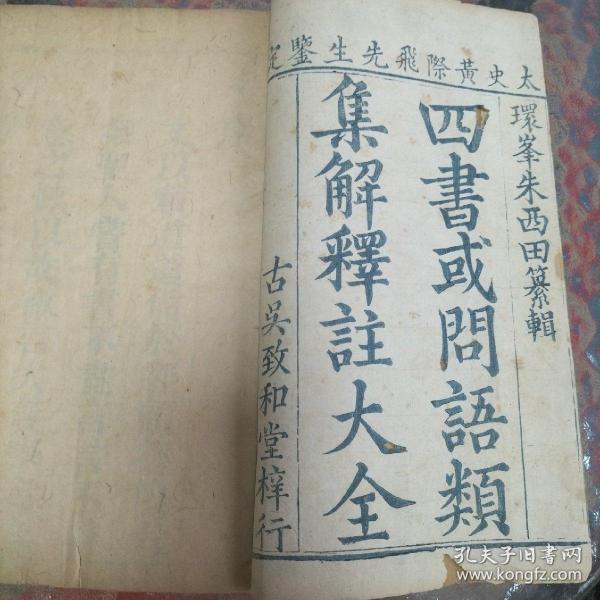 太史黃際飛先生鑒定
環峯朱西田纂輯
四書或問語類
集解釋註大全
古吳致和堂梓行
孔夫子旧书网
www.kongfz.com